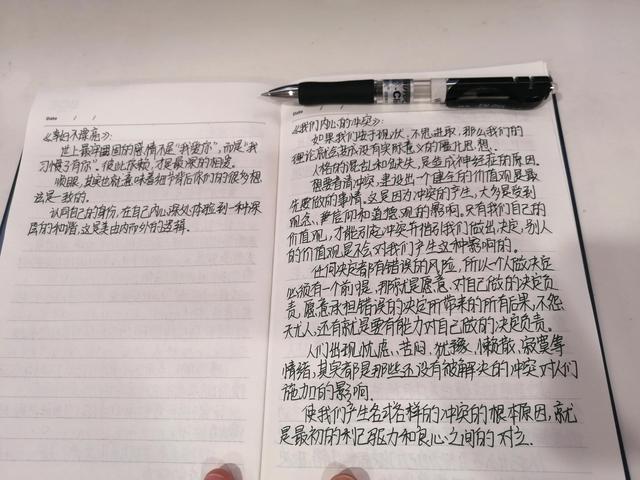 Date / /
《李白不漂亮》：
世上最牢固的感情不是"我爱你"，而是"我
习惯了有你"。彼此依赖，才是最深的相爱。
顺眼，其实也就意味着细节背后你们的很多想
法是一致的。
认同自己的身份，在自己内心深处体验到一种深
层的和谐，这是美由内而外的逻辑。
Date / /
《我们内心的冲突》：
如果我们安于现状，不思进取，那么我们的
理论就会成为没有实际意义的腐化思想。
人格的混乱和缺失，是造成神经症的原因。
想要看清冲突，建设出一个健全的价值观是最
先要做的事情。这是因为冲突的产生，大多是受到
观念、信仰和道德观的影响。只有我们自己的
价值观，才能引起冲突并指引我们做出决定，别人
的价值观是不会对我们产生这种影响的。
任何决定都有错误的风险，所以一个人做决定
必须有一个前提，那就是愿意对自己做的决定负
责，愿意承担错误的决定所带来的所有后果，不怨
天尤人，还有就是要有能力对自己做的决定负责。
人们出现忧虑、苦闷、犹豫、懒散、寂寞等
情绪，其实都是那些还没有被解决的冲突对人们
施加的影响。
使我们产生各式各样的冲突的根本原因，就
是最初的利己能力和良心之间的对立。